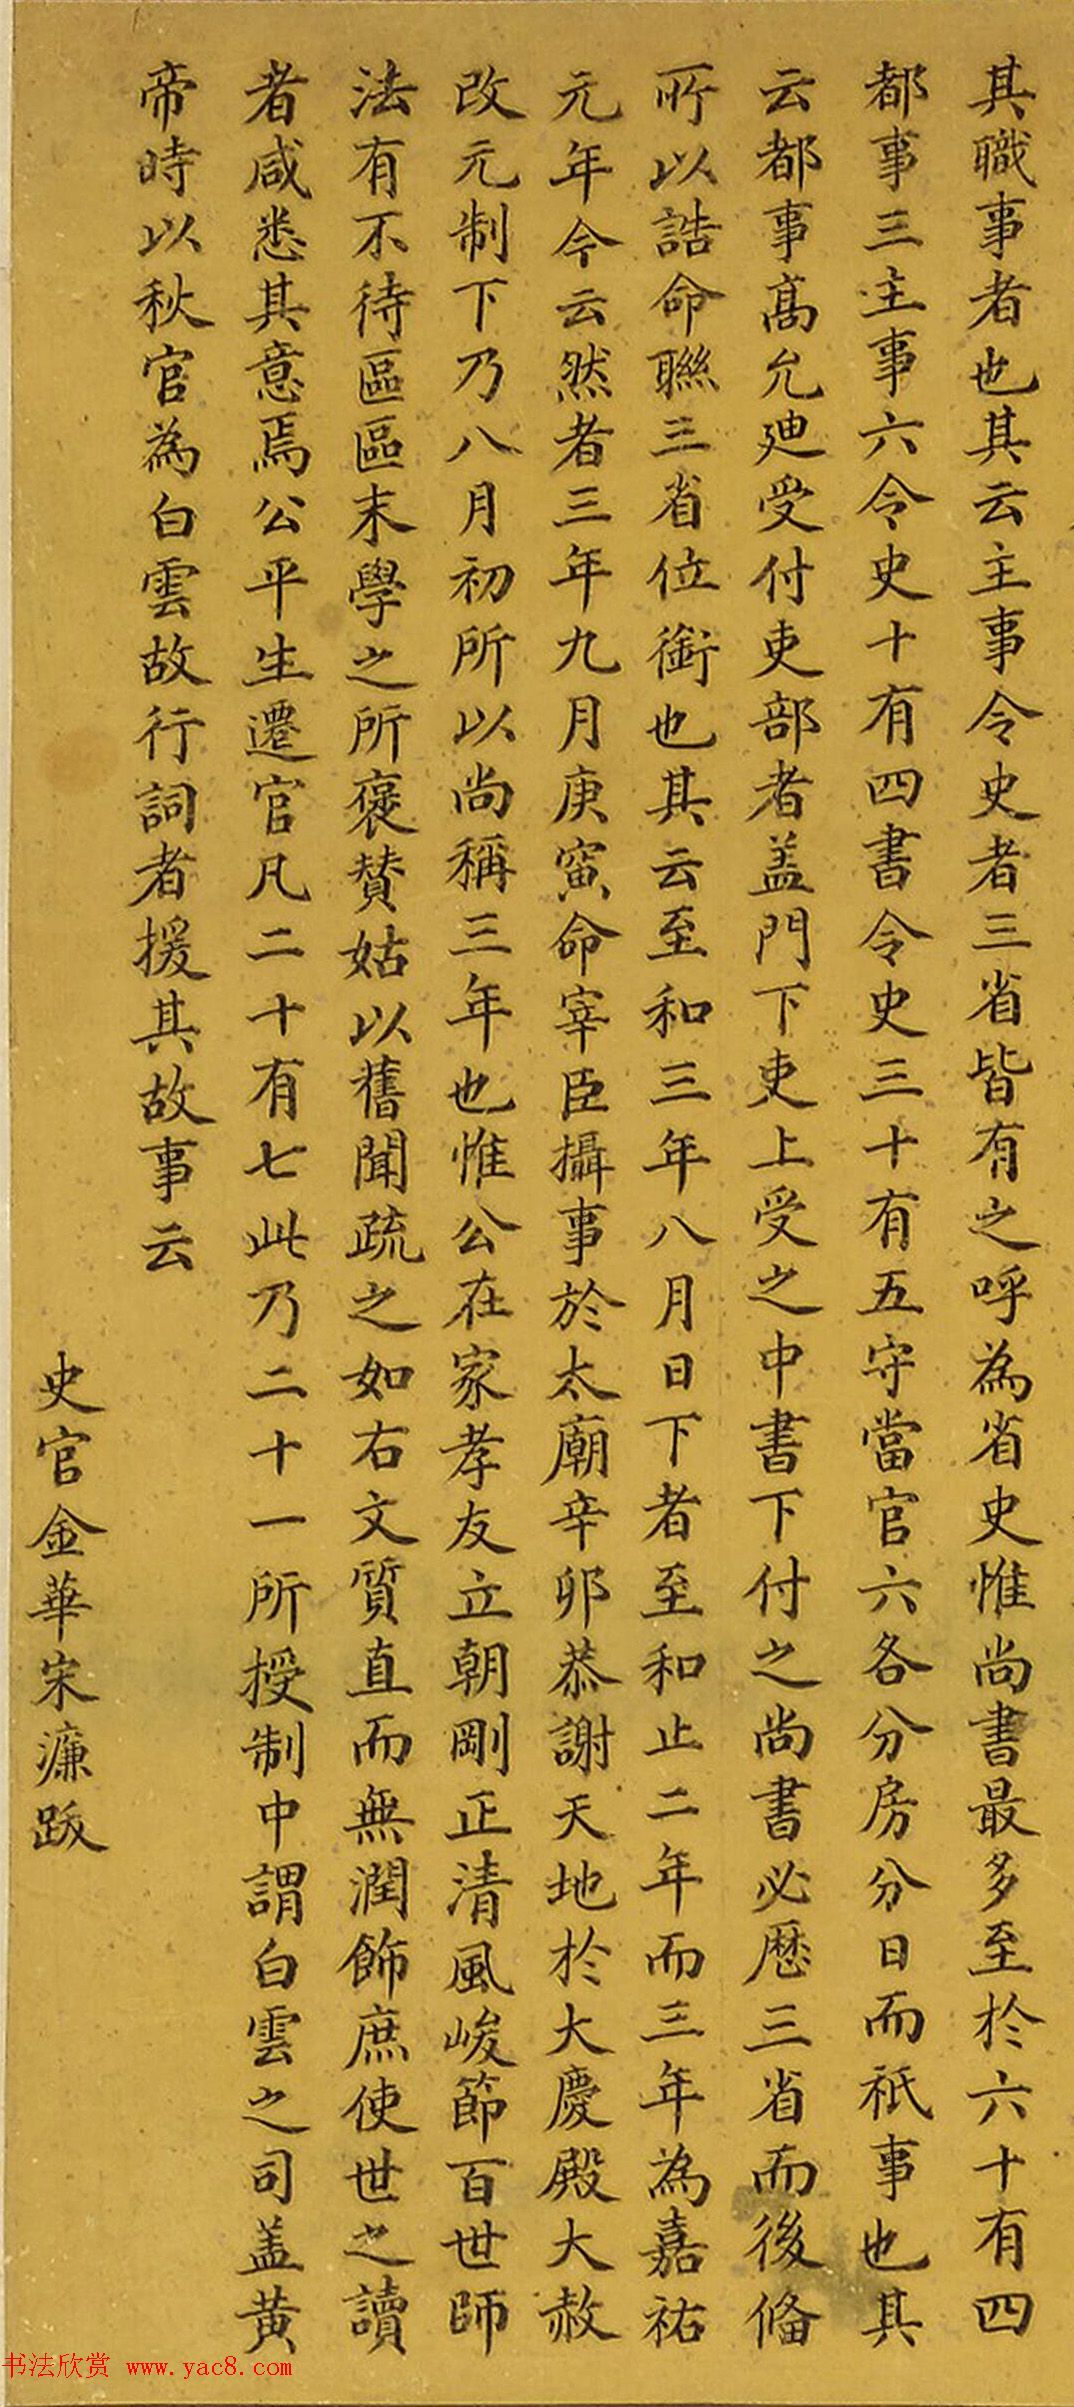 其職事者也其云主事令史者三省皆有之呼為省史惟尚書最多至於六十有四
都事三主事六令史十有四書令史三十有五守當官六各分房分日而祇事也其
云都事髙允迪受付吏部者盖門下吏上受之中書下付之尚書必歷三省而後俻
所以誥命聯三省位銜也其云至和三年八月日下者至和止二年而三年為嘉祐
元年今云然者三年九月庚寅命宰臣攝事於太廟辛卯恭謝天地於大慶殿大赦
改元制下乃八月初所以尚稱三年也惟公在家孝友立朝剛正清風峻節百世師
法有不待區區末學之所褒賛姑以舊聞疏之如右文質直而無潤飾庶使世之讀
者咸悉其意焉公平生遷官凡二十有七此乃二十一所授制中謂白雲之司盖黄
帝時以秋官為白雲故行詞者援其故事云
史官金華宋濂跋
书法欣赏 www.yac8.com